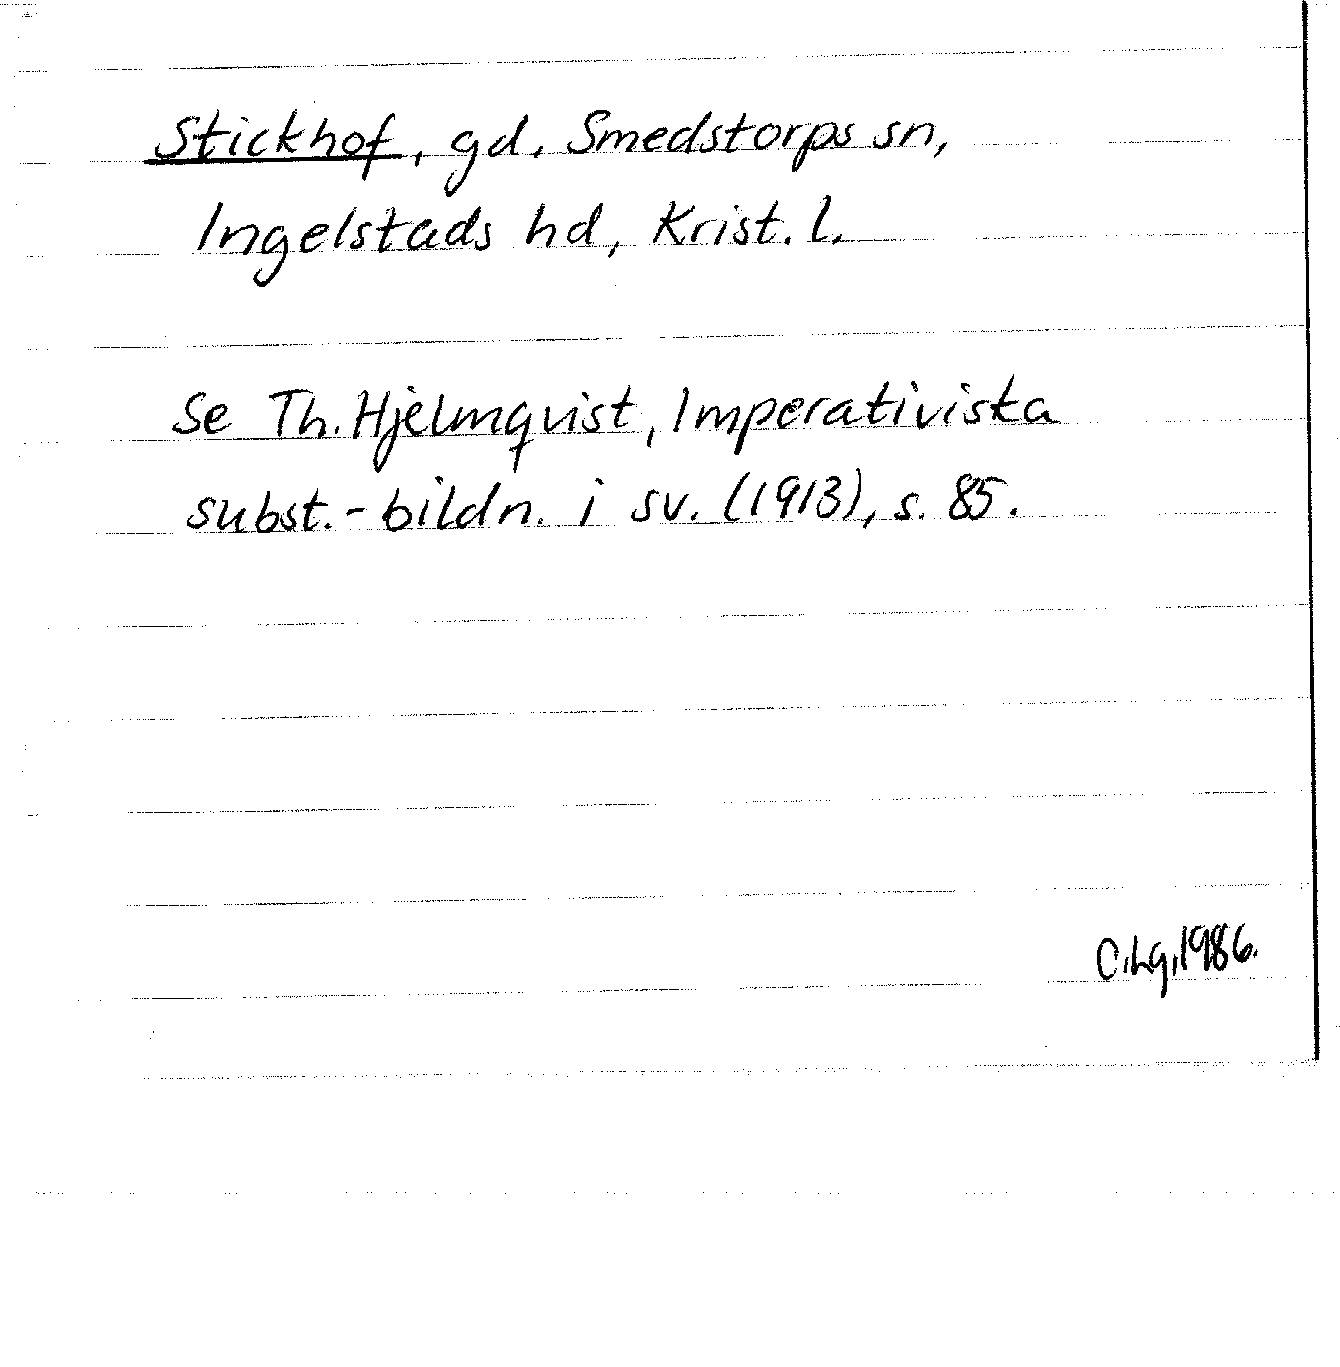 Stickhof, gd, Smedstorps sn,
Ingelstads hd, Krist. l.
Se Th. Hjelmqvist, Imperativiska
subst.-bildn. i sv. (1913), s. 85.
C.Lg.1986.